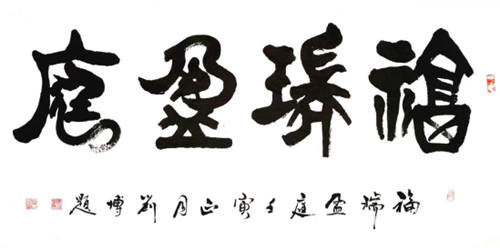 福瑞盈庭
福瑞盈庭壬寅正月刘博题